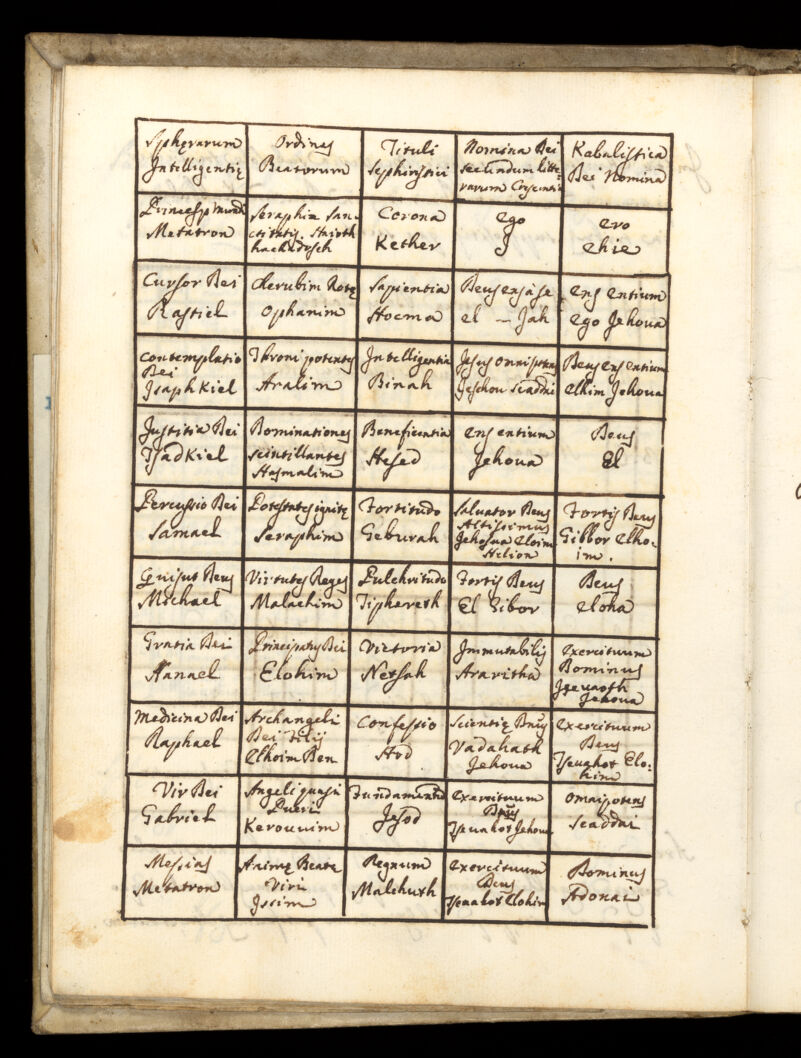 Sphęrarum
Intelligentię
Ordines
Beatorum
Tituli
Sephirstici
Nomina Dei
secundum litte-
rarum
Kabalistica
Dei Nomina
Princeps mundi
Metatron
Seraphim San-
ctitatis. Haioth
hackadosch
Corona
Kether
Ego
J
Ero
Ehie
Cursor Dei
Rastiel
Cherubim Rotę
Ophanim
Sapientia
Hocma
Deus ens a se
el – Jah
Ens entium
Ego Jehova
Contemplatio
Dei
Jsaphkiel
Throni potentes
Aralim
Intelligentia
Binah
Jesus omnipotens
Jeschou Scaddai
Deus ens entium
Elhim Jehova
Justitia Dei
Tsadkiel
Dominationes
scintillantes
Hasmalim
Beneficentia
Hesed
Ens entium
Jehova
Deus
El
Percussio Dei
Samael
Potestates ignitę
Seraphim
Fortitudo
Geburah
Salvator Deus
Altissimus
Jehosua Eloim
Helion
Fortis Deus
Gibbor Elho-
im.
Deus
Michael
Virtutes Reges
Malachim
Pulchritudo
Tiphereth
Fortis Deus
El Gibor
Deus
Eloha
Gratia Dei
Hanael
Principatus Dei
Elohim
Victoria
Netsah
Immutabilis
Araritha
Exercituum
Dominus
Jsevaoth
Jehova
Medicina Dei
Raphael
Archangeli
Dei Filij
Elhoim Ben
Confessio
Hod
Scientię Dnus
Vadahath
Jehova
Exercituum
Deus
Tsevahot Elo-
him
Vir Dei
Gabriel
Angeli quasi
Pueri
Kerouvim
Fundamentum
Jesod
Exercituum
Dnus
Tsevahot Jehova
Omnipotens
Scaddai
Messias
Metatron
Animę Beatę
Viri
Issim
Regnum
Malchuth
Exercituum
Deus
Tsevahot Elohim
Dominus
Adonai